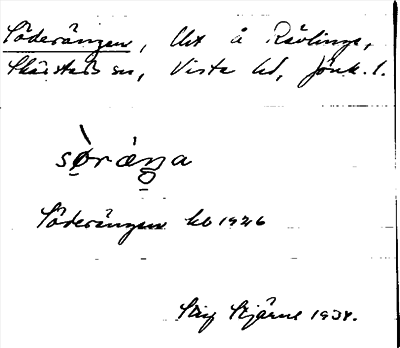 Söderängen, lht å Rävlinge,
Skärstads sn, Vista hd, Jönk. l.
sø̀ráŋa
Söderängen kb 1926
Stig Stjärne 1938.